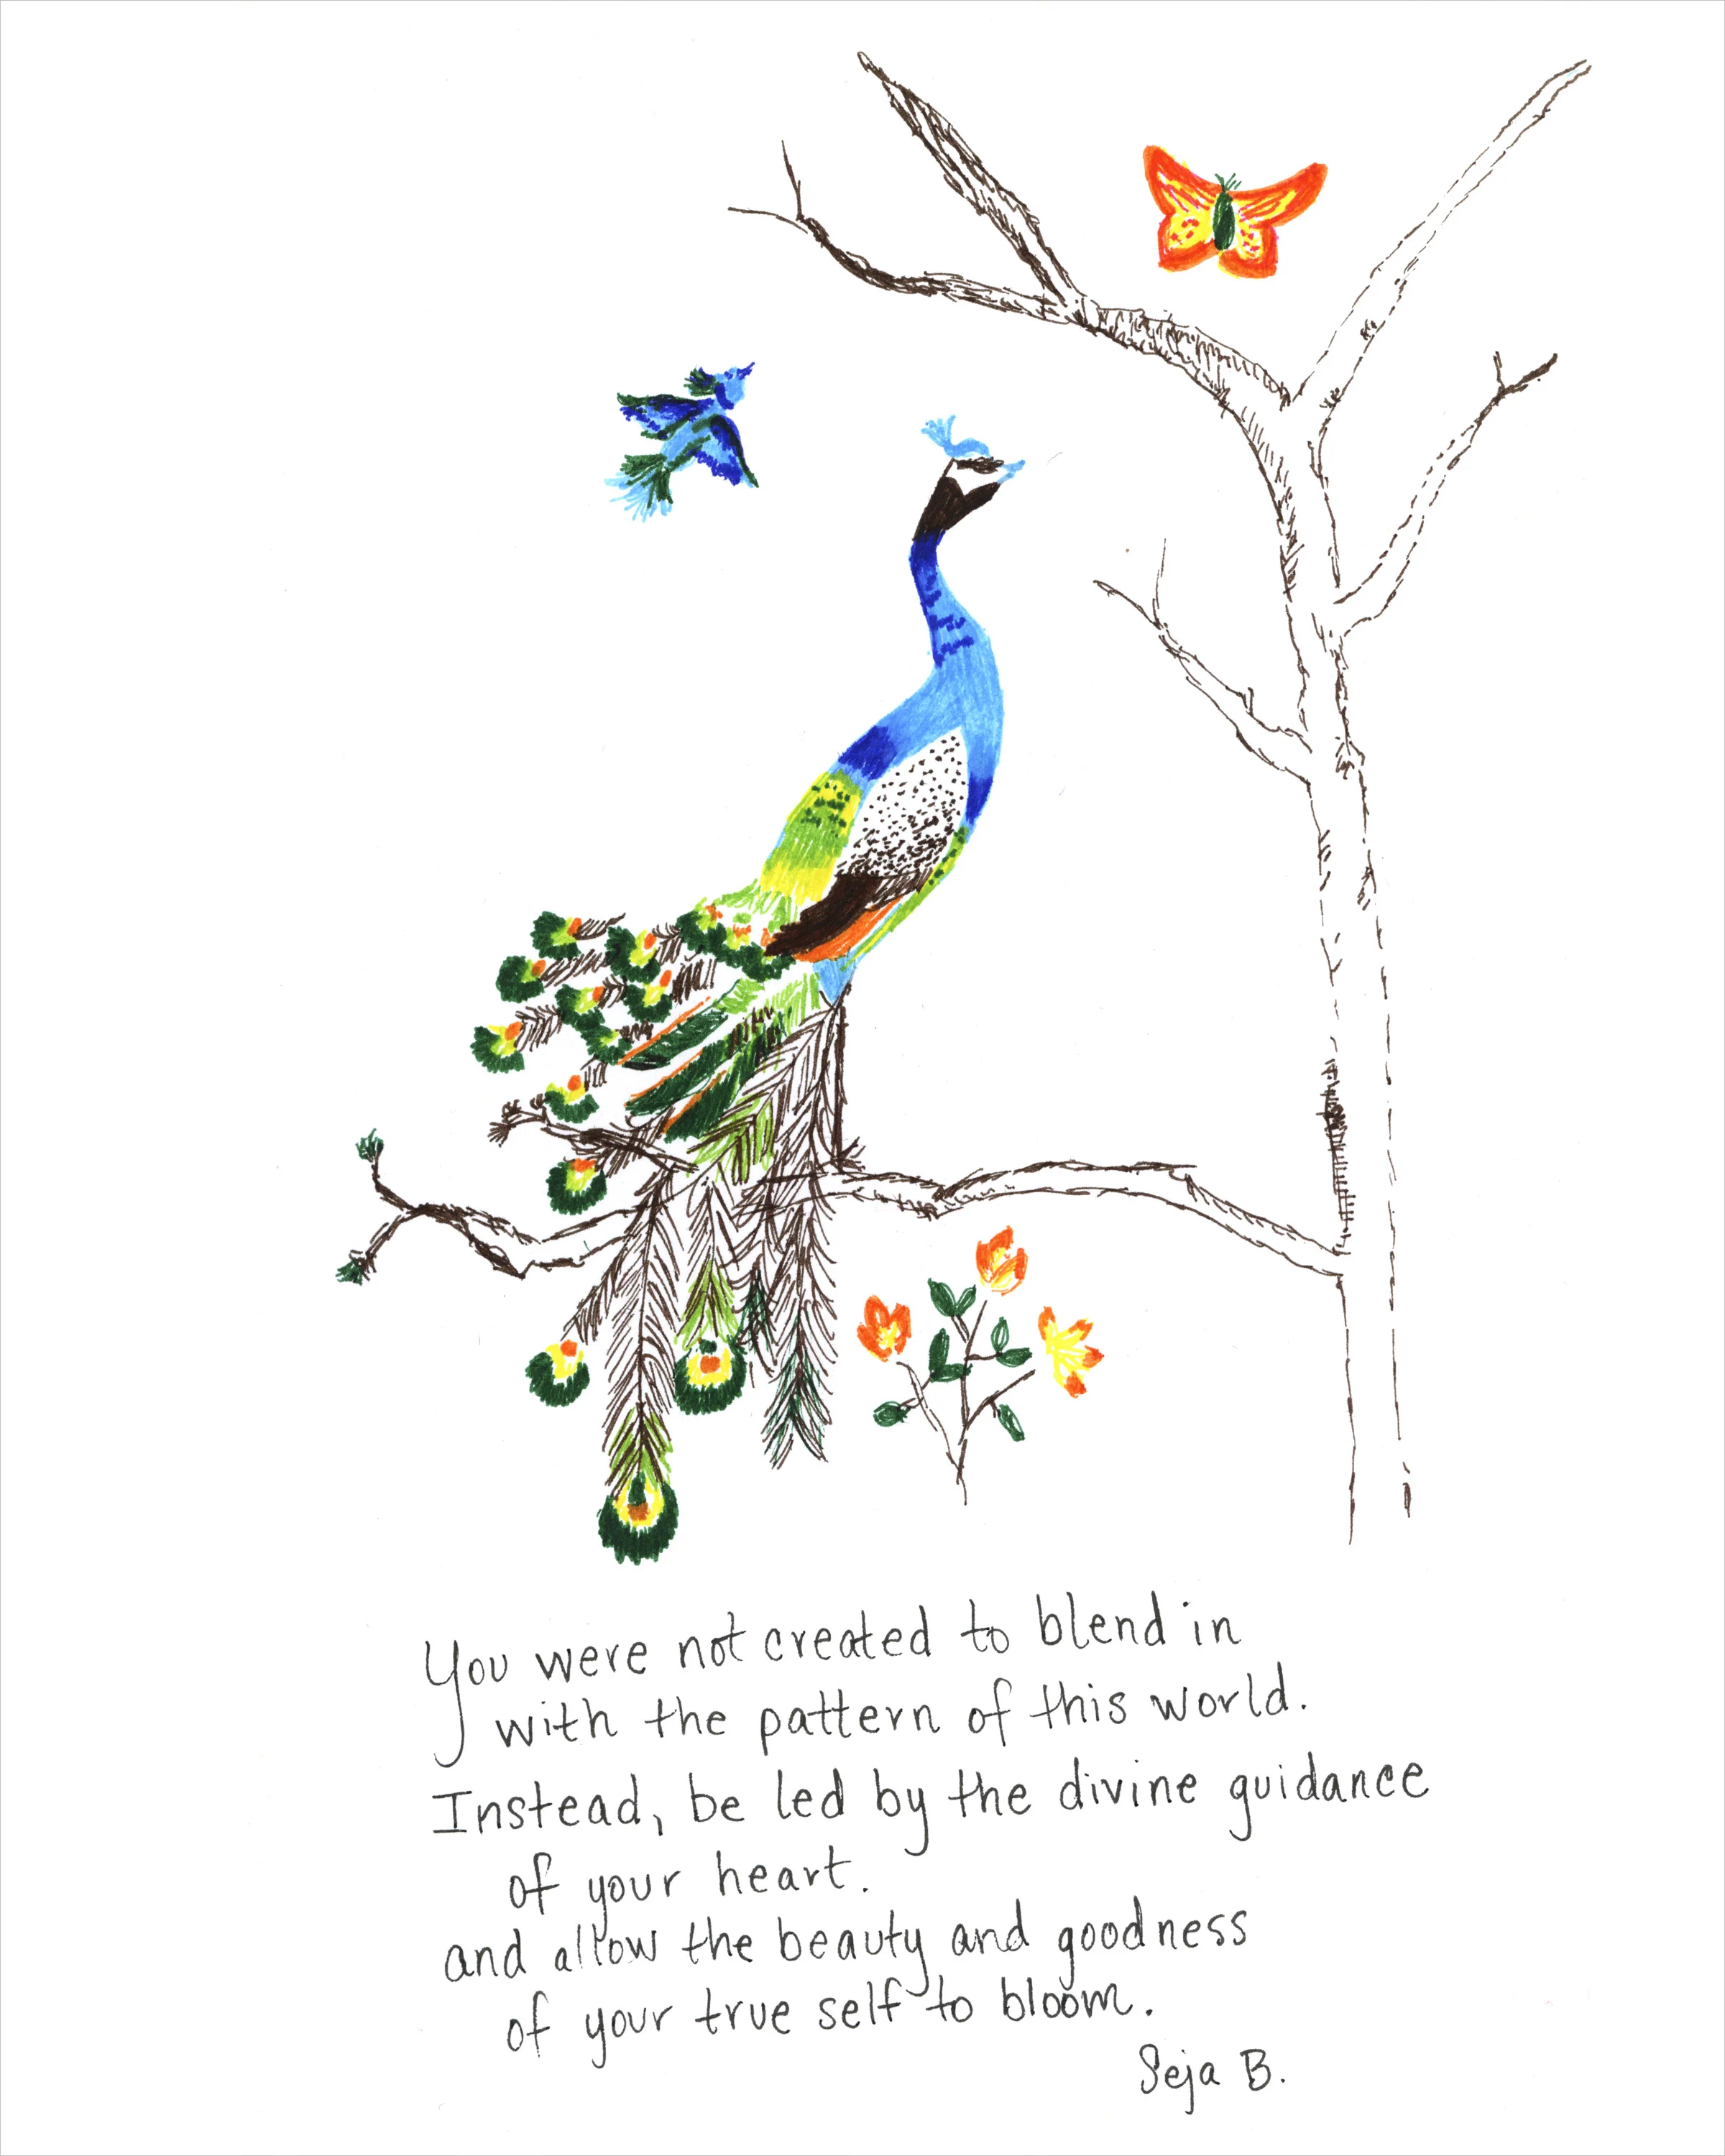 You were not created to blend in
with the pattern of this world.
Instead, be led by the divine guidance
of your heart.
and allow the beauty and goodness
of your true self to bloom.
Seja B.